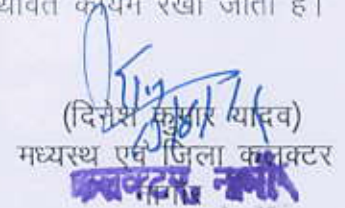 यथावत कायम रखा जाता है।
(दिनेश कुमार यादव)
मध्यस्थ एवं जिला कलक्टर
नागौर